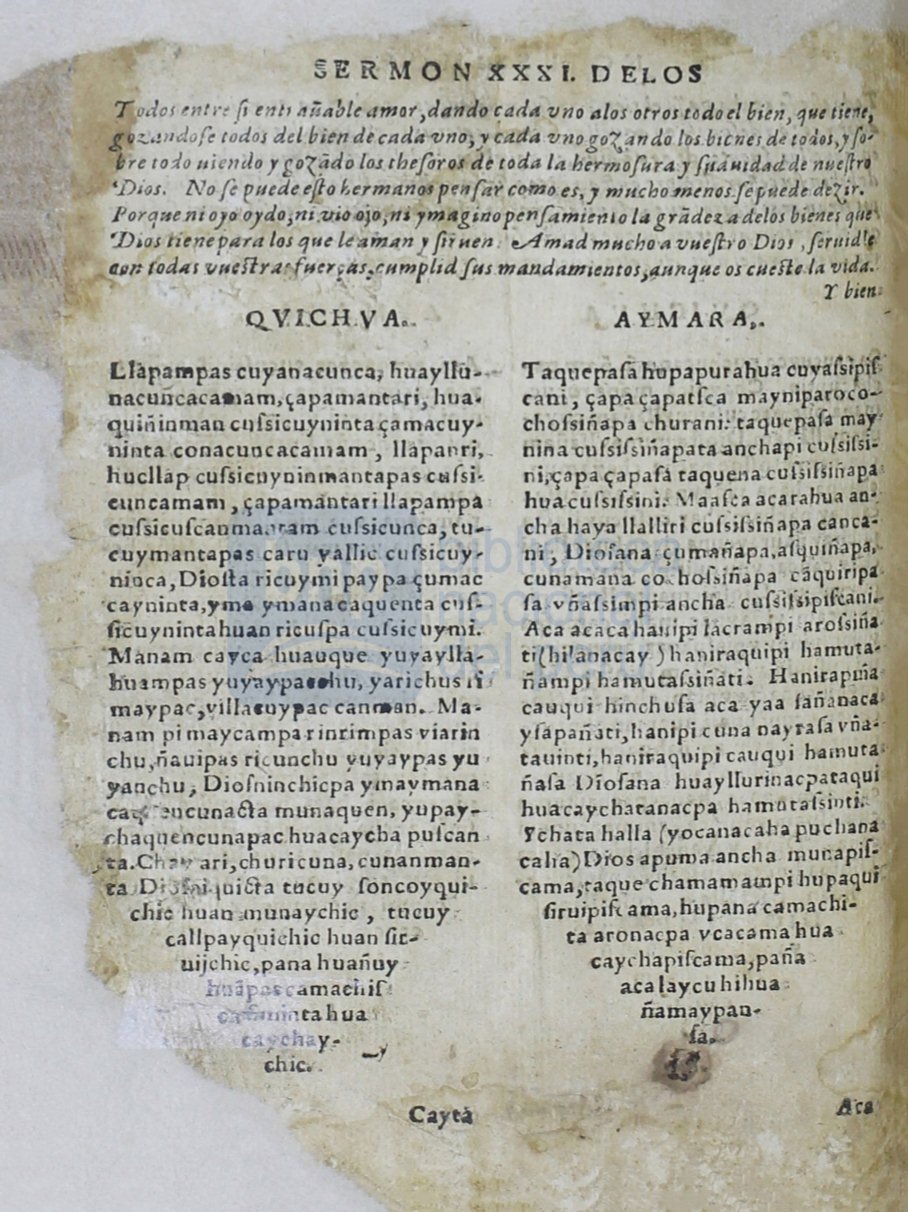 SERMON XXXI. DELOS
Todos entre si entrañable amor, dando cada vno alos otros todo el bien, que tiene,
gozandose todos del bien de cada vno, y cada vno gozando los bienes de todos, y so-
bre todo uiendo y gozādo los thesoros de toda la hermosura y suauidad de nuestro
Dios. No se puede esto hermanos pensar como es, y mucho menos se puede dezir.
Porque ni oyo oydo, ni vio ojo, ni ymagino pensamiento la grādeza delos bienes que
Dios tiene para los que le aman y siruen. Amad mucho a vuestro Dios, seruidle
con todas vuestras fuerças, cumplid sus mandamientos, aunque os cueste la vida.
Y bien
QVICHVA.
Llapampas cuyanacunca, huayllu-
nacuncacamam, çapamantari, hua-
quiñinman cussicuyninta çamacuy-
ninta conacuncacamam, llapanri,
hucllap cussicuyninmantapas cussi-
cuncamam, çapamantari llapampa
cussicuscanmantam cussicunca, tu-
cuymantapas caru yallic cussicuy-
ninca, Diosta ricuymi paypa çumac
cayninta, yma ymana caquenta cus-
sicuynintahuan ricuspa cussicuymi.
Manam cayca huauque yuyaylla-
huampas yuyaypacchu, yarichus si
maypac, villacuypac canman. Ma-
nam pi maycampa rinrimpas viarin
chu, ñauipas ricunchu yuyaypas yu
yanchu, Diosninchicpa ymaymana
caquencunacta munaquen, yupay-
chaquencunapac huacaycha puscan
ta. Chay ari, churicuna, cunanman-
ta Diosniquicta tucuy soncoyqui-
chic huan munaychic, tucuy
callpayquichic huan sir-
uijchic, pana huañuy
huāpas camachis
cañininta hua
caychay-
chic.
Cayta
AYMARA.
Taquepasa hupapurahua cuyassipis
cani, çapa çapatsca mayniparoco-
chossiñapa churani: taquepasa may
nina cussissiñapata anchapi cussissi-
ni, çapa çapasa taquena cussissiñapa
hua cussissini. Maasca acarahua an-
cha haya llalliri cussissiñapa canca-
ni, Diosana çumañapa, asquiñapa,
cunamana cochossiñapa cāquiripa
sa vñassimpi ancha cussissipiscani.
Aca acaca hanipi lacrampi arossiña
ti (hilanacay) haniraquipi hamuta-
ñampi hamutassiñati. Hanirapiña
cauqui hinchusa aca yaa sañanaca
ysapañati, hanipi cuna nayrasa vña-
tauinti, haniraquipi cauqui hamuta
ñasa Diosana huayllurinacpataqui
huacaychatanacpa hamutassinti.
Ychata halla (yocanacaha puchana
caha) Dios apuma ancha munapis-
cama, taque chamamampi hupaqui
siruipiscama, hupana camachi-
ta aronacpa vcacama hua
caychapiscama, paña
aca laycu hihua
ñamaypan-
sa.
Aca